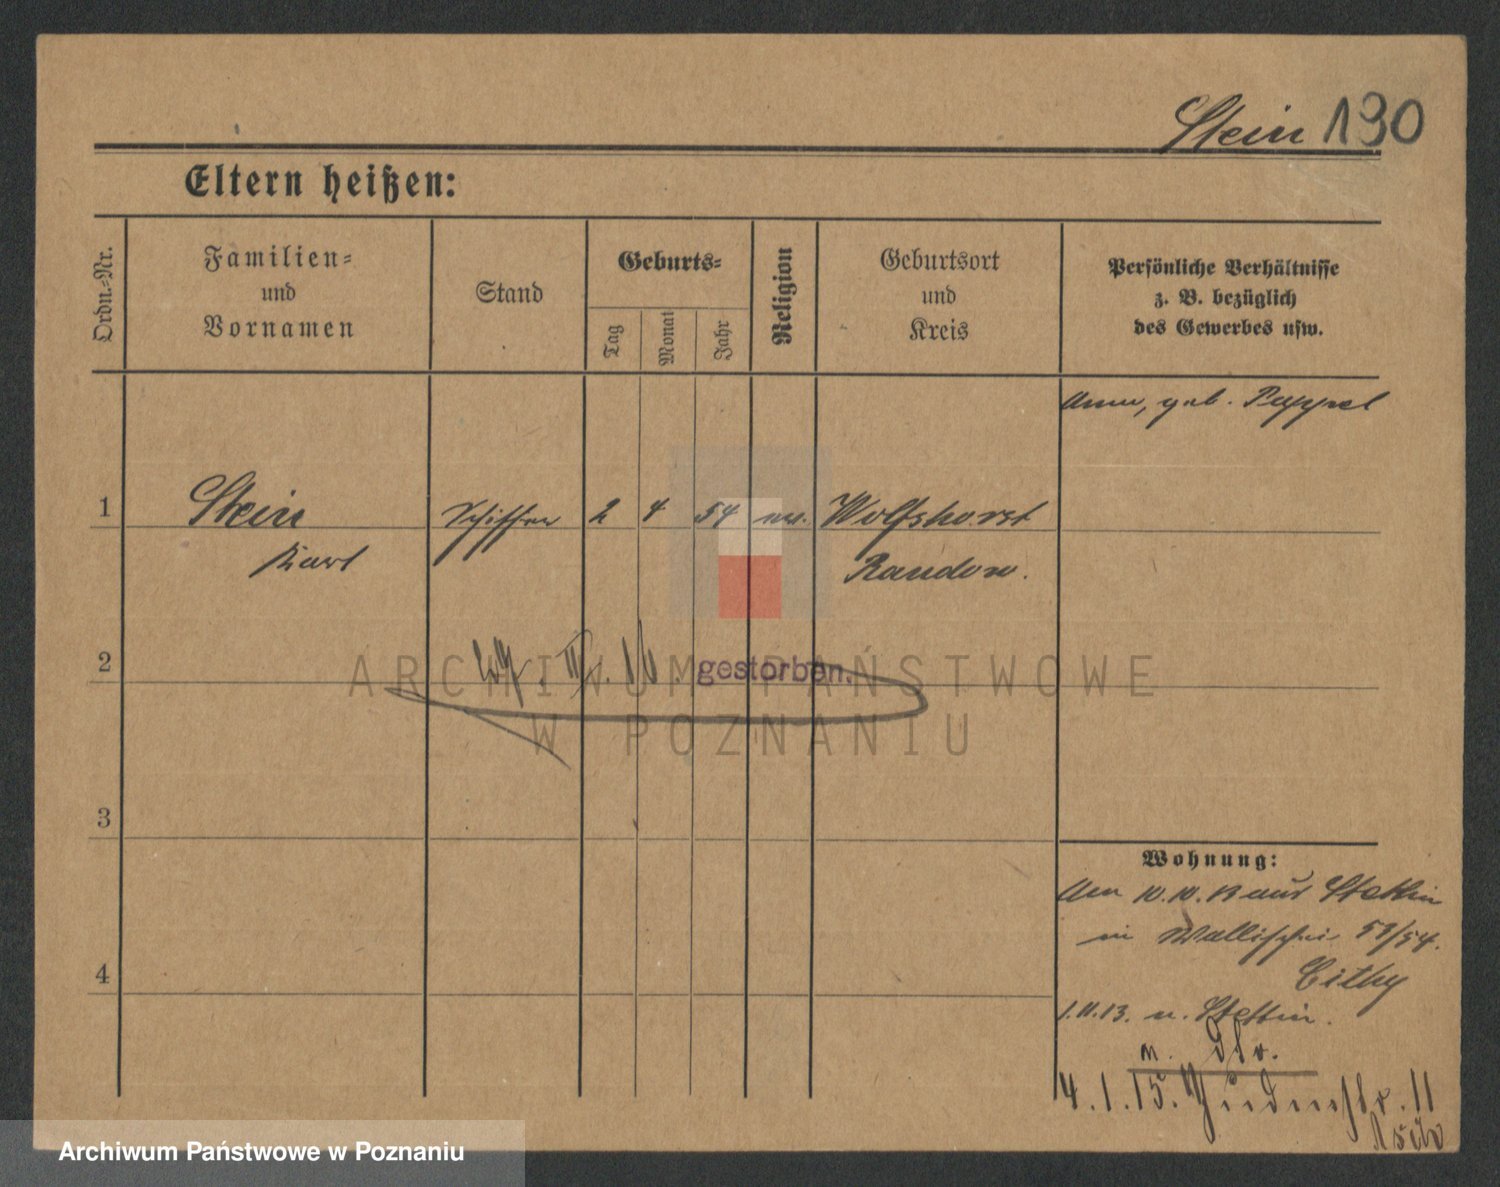 Stein 190
Eltern heißen:
Ordn.-Nr.
Familien-
und
Vornamen
Stand
Geburts-
Tag
Monat
Jahr
Religion
Geburtsort
und
Kreis
Persönliche Verhältnisse
z. B. bezüglich
des Gewerbes usw.
Anna, geb. Puppel
1 Stein Schiffer 2 4 54 ev. Wolfshorst
Karl Randow.
2 gestorben.
ARCHIWUM PAŃSTWOWE
W POZNANIU
3
Wohnung:
Am 10.10.13 aus Stettin
in Wallischei 53/54.
4
1.11.13. n. Stettin.
4.1.15. Judenstr. 11
Archiwum Państwowe w Poznaniu